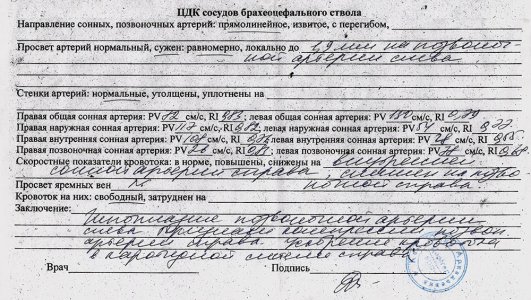 ЦДК сосудов брахеоцефального ствола
Направление сонных, позвоночных артерий: прямолинейное, извитое, с перегибом,
Просвет артерий нормальный, сужен: равномерно, локально до 1,9 мм на позвоноч-
ной артерии слева
Стенки артерий: нормальные, утолщены, уплотнены на
Правая общая сонная артерия: PV см/с, RI ; левая общая сонная артерия: PV 150 см/с, RI 0,79
Правая наружная сонная артерия: PV 117 см/с, RI ; левая наружная сонная артерия: PV 54 см/с, RI 0,77
Правая внутренняя сонная артерия: PV см/с, RI левая внутренняя сонная артерия: PV см/с, RI
Правая позвоночная сонная артерия: PV см/с, RI ; левая позвоночная сонная артерия: PV см/с, RI
Скоростные показатели кровотока: в норме, повышены, снижены на внутренней
сонной артерии справа, снижен на позво
ночной справа
Просвет яремных вен N
Кровоток на них: свободный, затруднен на
Заключение:
Гипоплазия позвоночной артерии
слева. Признаки компрессии позвон.
артерии справа. Ускорение кровотока
в каротидной системе справа
Врач Подпись